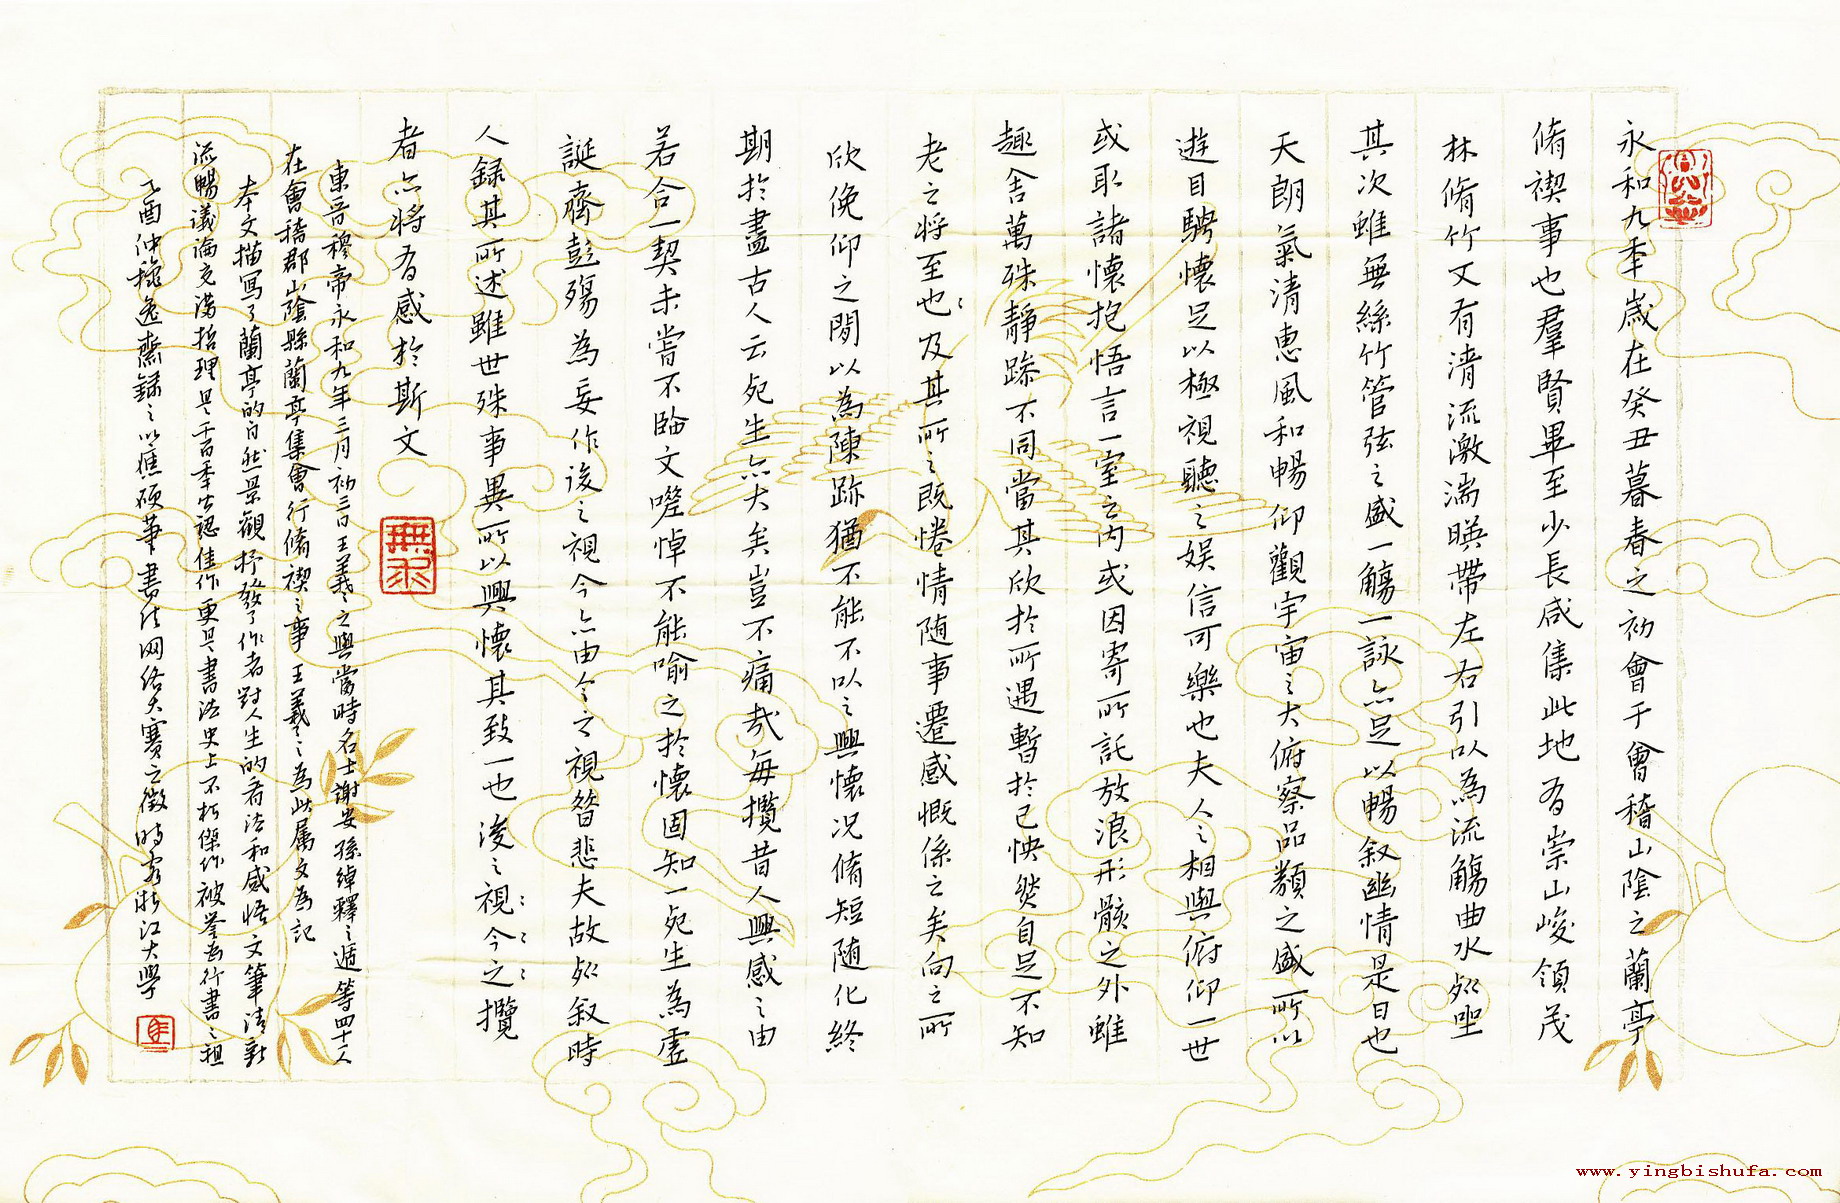 永和九年歲在癸丑暮春之初會于會稽山陰之蘭亭
脩禊事也羣賢畢至少長咸集此地有崇山峻領茂
林脩竹又有清流激湍暎帶左右引以為流觴曲水列坐
其次雖無絲竹管弦之盛一觴一詠亦足以暢叙幽情是日也
天朗氣清惠風和暢仰觀宇宙之大俯察品類之盛所以
遊目騁懷足以極視聽之娛信可樂也夫人之相與俯仰一世
或取諸懷抱悟言一室之内或因寄所託放浪形骸之外雖
趣舍萬殊靜躁不同當其欣於所遇暫於己怏然自足不知
老之將至也及其所之既惓情随事遷感慨係之矣向之所
欣俛仰之間以為陳跡猶不能不以之興懷况脩短随化終
期於盡古人云死生亦大矣豈不痛哉每攬昔人興感之由
若合一契未嘗不臨文嗟悼不能喻之於懷固知一死生為虛
誕齊彭殤為妄作後之視今亦由今之視昔悲夫故列叙時
人録其所述雖世殊事異所以興懷其致一也後之視今之攬
者亦將有感於斯文
東晋穆帝永和九年三月初三日王羲之與當時名士謝安孫綽釋之遁等四十二人
在會稽郡山陰縣蘭亭集會行脩禊之事王羲之為此属文為記
本文描寫了蘭亭的自然景觀抒發了作者對人生的看法和感悟文筆清新
流暢議論充滿哲理是千百年公認佳作更是書法史上不朽傑作被譽為行書之祖
乙酉仲穐逸齋録之以應硬筆書法网络大賽之徵時客浙江大學
www.yingbishufa.com